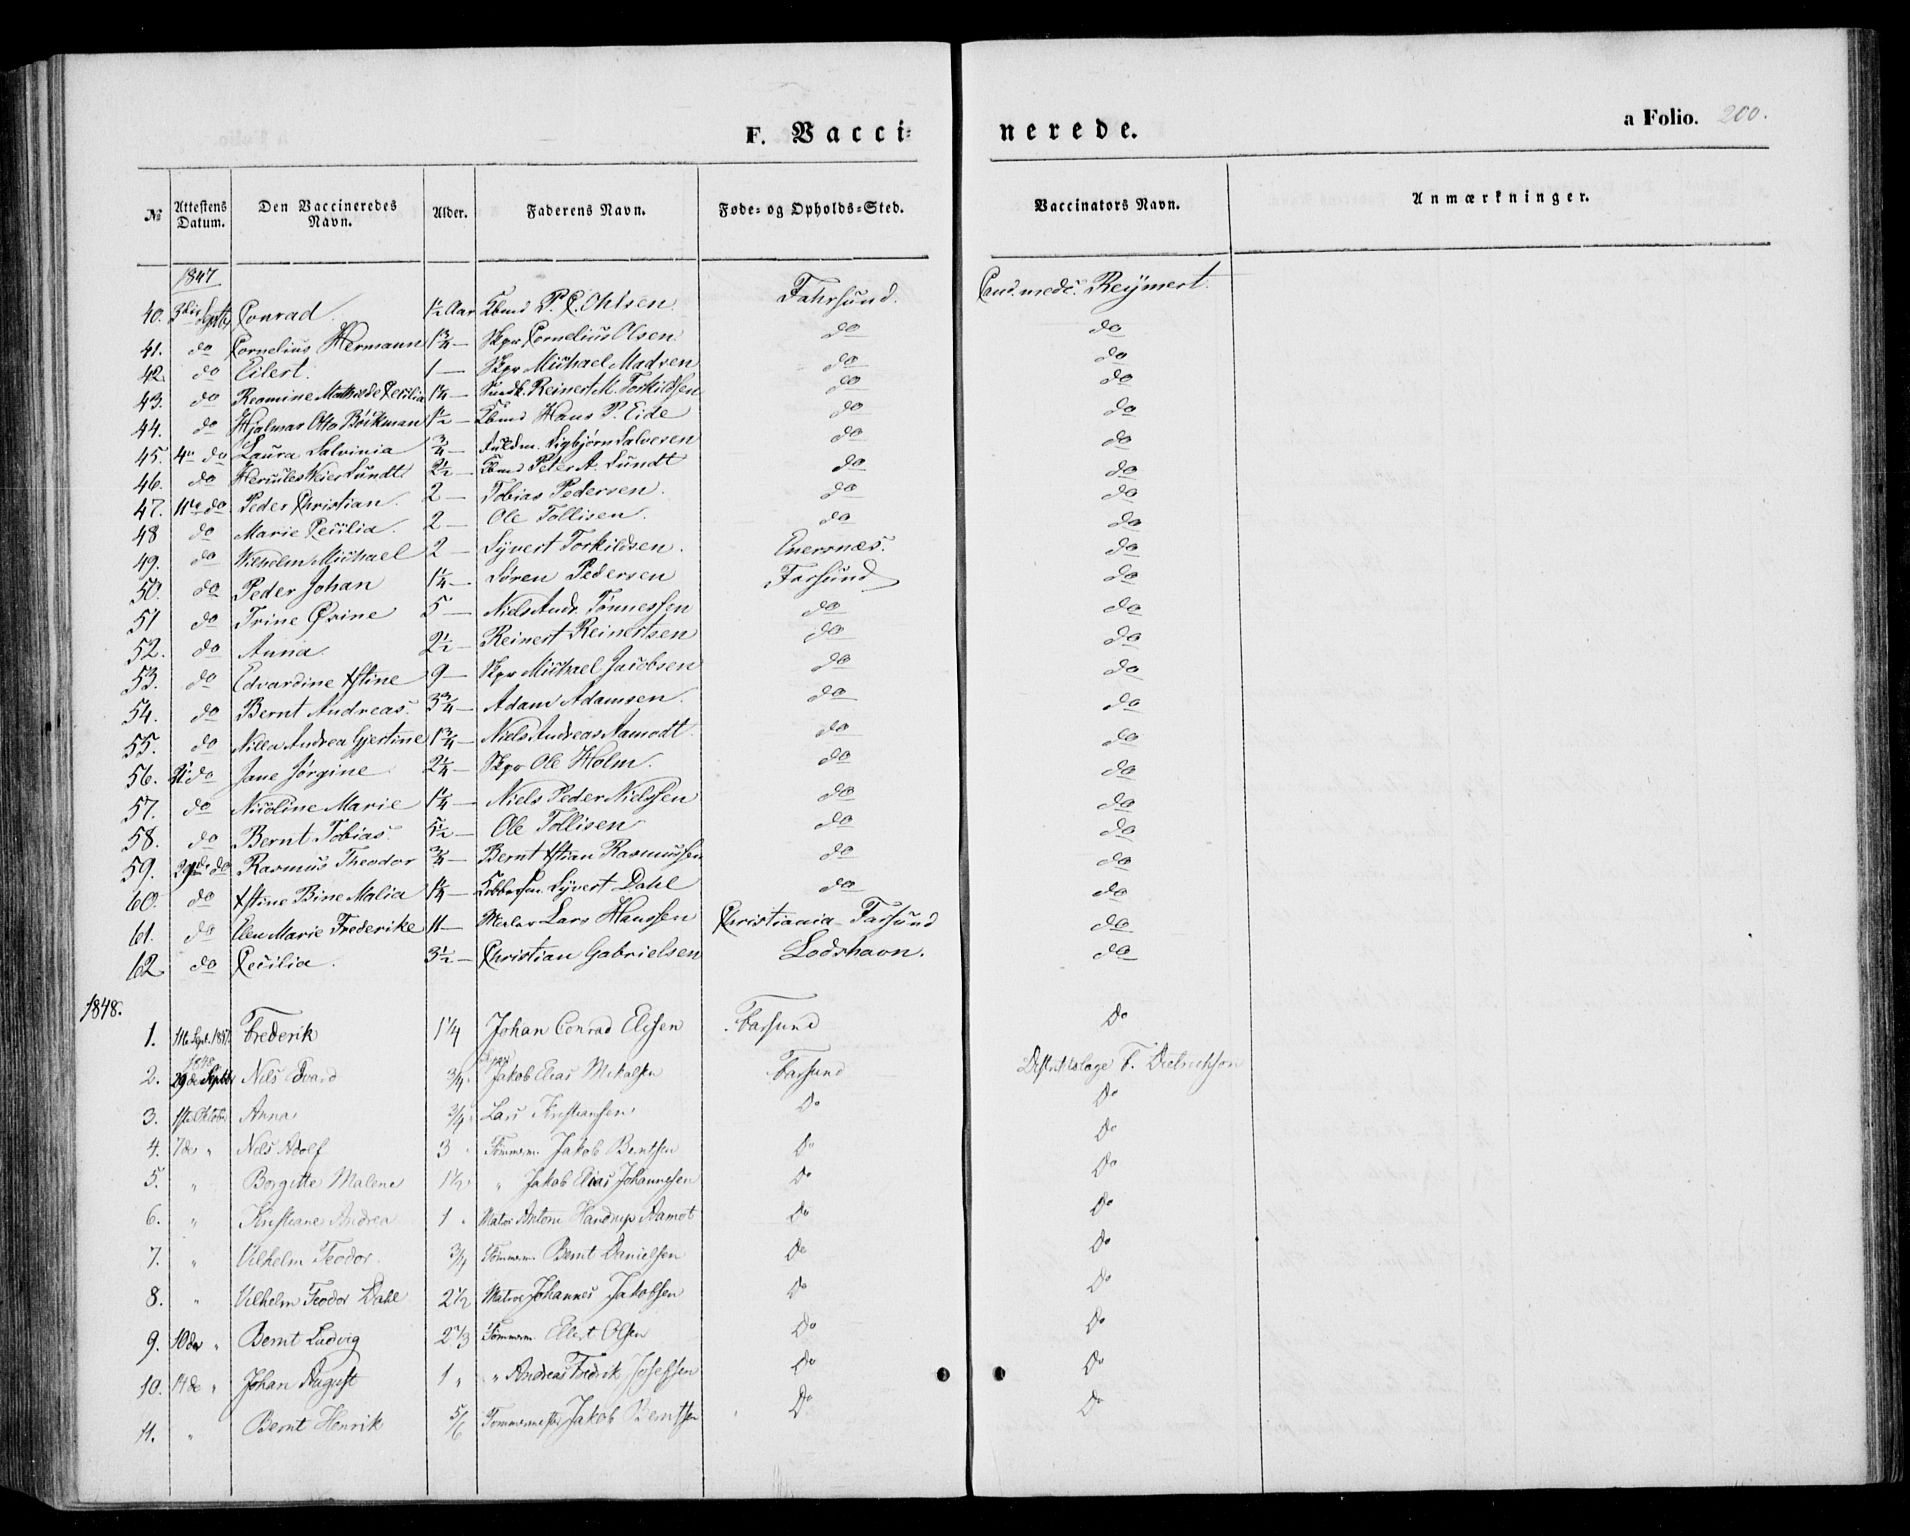 F. Vacci-nerede.
a Folio. 200.
№ Attestens Datum. Den Vaccineredes Navn. Alder. Faderens Navn. Føde- og Opholds-Sted. Vaccinators Navn. Anmærkninger.
1847
40. Conrad. 1½ Aar Kbmd P. C. Ohlsen Fahrsund. Cand. med. Reymert.
41. do Cornelius Hermann 1¾ — Skpr Cornelius Olsen. do do
42. do Eilert. 1 — Skpr Michael Madsen do do
43. do Reamine Mathilde Cecilia 1¼ — Reinert M. Torkildsen do do
44. do Hjalmar Otto Böckman 1½ — Kbmd Hans P. Eide do do
45. 4de do Laura Salvinia ¾ — Sigbjørn Salvesen do do
46. do Hercules Weier Lundt 2½ — Kbmd Peter A. Lundt do do
47. 11te do Peder Christian. 2 — Tobias Pedersen. do do
48 do Marie Cecilia. 2 — Ole Tollisen. do do
49. do Wilhelm Michael 2 — Syvert Torkildsen. Enersnes. do
50. do Peder Johan 1¼ — Søren Pedersen Farsund do
51 do Trine Øvine 5 — Niels Andr. Tønnessen do do
52. do Anna. 2½ — Reinert Reinertsen do do
53. do Edvardine Xstine 9 — Skpr Michael Jacobsen do do
54. do Bernt Andreas. 3¾ — Adam Adamsen. do do
55. do Nilla Andrea Gjertine 1¾ — Niels Andreas Aamodt. do do
56. do Jane Jørgine 2¼ — Skpr Ole Holm. do do
57. do Nicoline Marie 1¼ — Niels Peder Nielssen do do
58. do Bernt Tobias. 5½ — Ole Tollisen do do
59. 29de do Rasmus Theodor ¾ — Bernt Xstian Rasmussen do do
60. do Xstine Bine Malia 1¼ — Syvert Dahl do do
61. do Elen Marie Frederike 11 — Lars Hanssen Christiania - Farsund do
62. do Cecilia. 3½ — Christian Gabrielsen Lodshavn. do
1848.
1. 11te Sept. 1847 Frederik 1¼ Johan Conrad Elissen Farsund Do
1848
2. 29de Septbr Nils Edvard ¾ Skpr Jakob Elias Mikalsen Farsund Distriktslæge F. Dietrichson
3. 1ste Oktober Anna ¾ Lars Kristiansen Do Do
4. 7de " Nils Adolf 3 " Tømmerm. Jakob Berntsen Do Do
5. " Borgitte Malene 1½ " Jakob Elias Johannesen Do Do
6. " Kristiane Andrea 1 " Matros Anton Handrup Aamot Do Do
7. " Vilhelm Teodor. ¾ Tømmerm. Bernt Danielsen Do Do
8. " Vilhelm Teodor Dahl 2½ Matros Johannes Jakobsen Do Do
9. 10de " Bernt Ludvig 2⅓ Tømmerm. Ellert Olsen Do Do
10. 14de " Johan August 1 " " Andreas Fredrik Josefsen Do Do
11. " Bernt Henrik 5/6 Tømmermester Jakob Berntsen Do Do